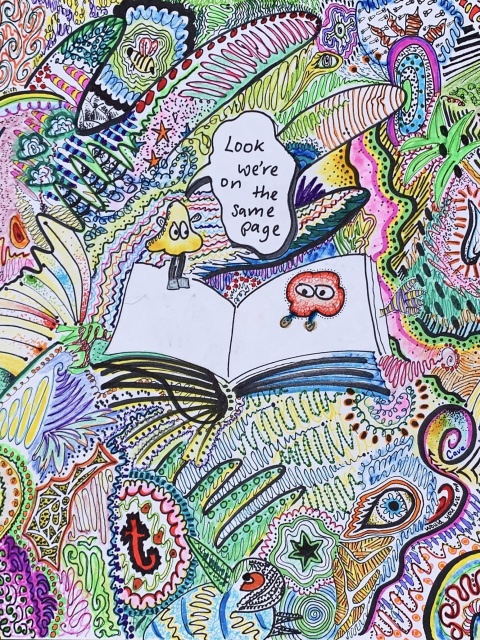 Look
we're
on the
same
page
t